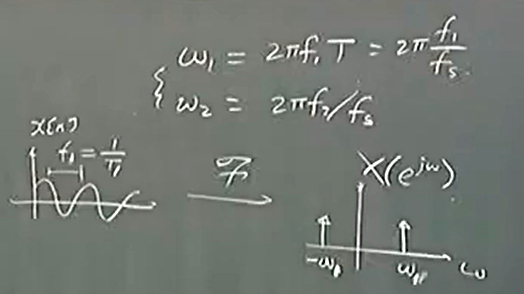 ω₁ = 2πf₁T = 2π f₁/fₛ
ω₂ = 2πf₂/fₛ
x[n]
f₁ = 1/T₁
F
X(e^{jω})
-ω₁ ω₁ ω